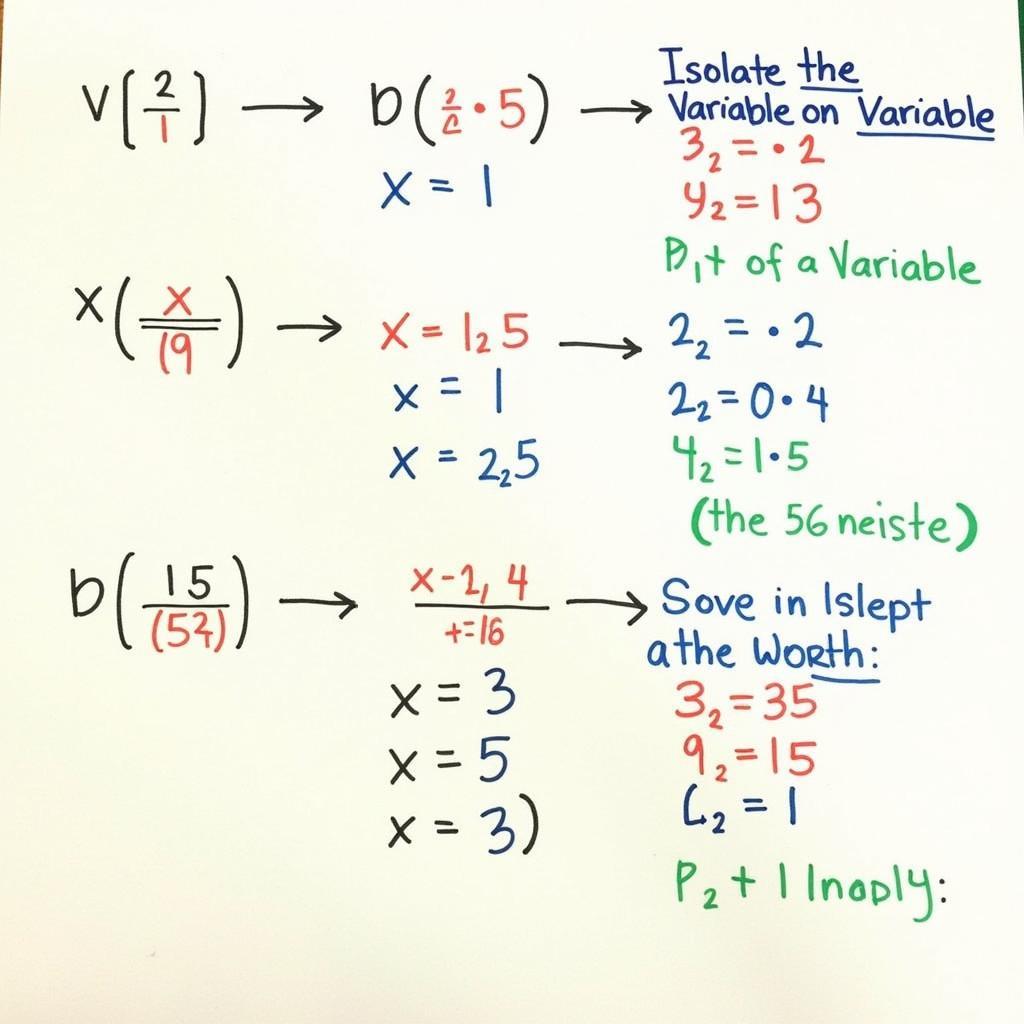 V[2/1] → D(2/c · 5) → Isolate the
Variable on Variable
x = 1
3₂ = · 2
y₂ = 13
of a Variable
x(x/(9) → x = 1₂5 → 2₂ = · 2
x = 1
2₂ = 0 · 4
x = 2₂5
4₂ = 1 · 5
(the 56 neiste)
b(15/(52)) → x-2, 4/+=16 → Sove in Islept
athe Worth:
x = 3
3₂ = 35
x = 5
9₂ = 15
x = 3)
L₂ = 1
P₂ + 1 Inoply: